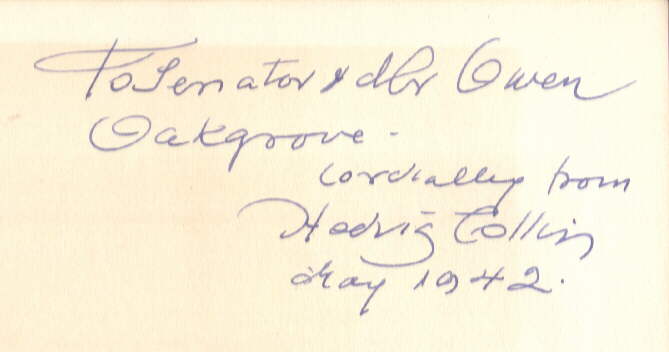 To Senator & Mr Owen
Oakgrove -
Cordially from
Hedvig Collin
May 1942.